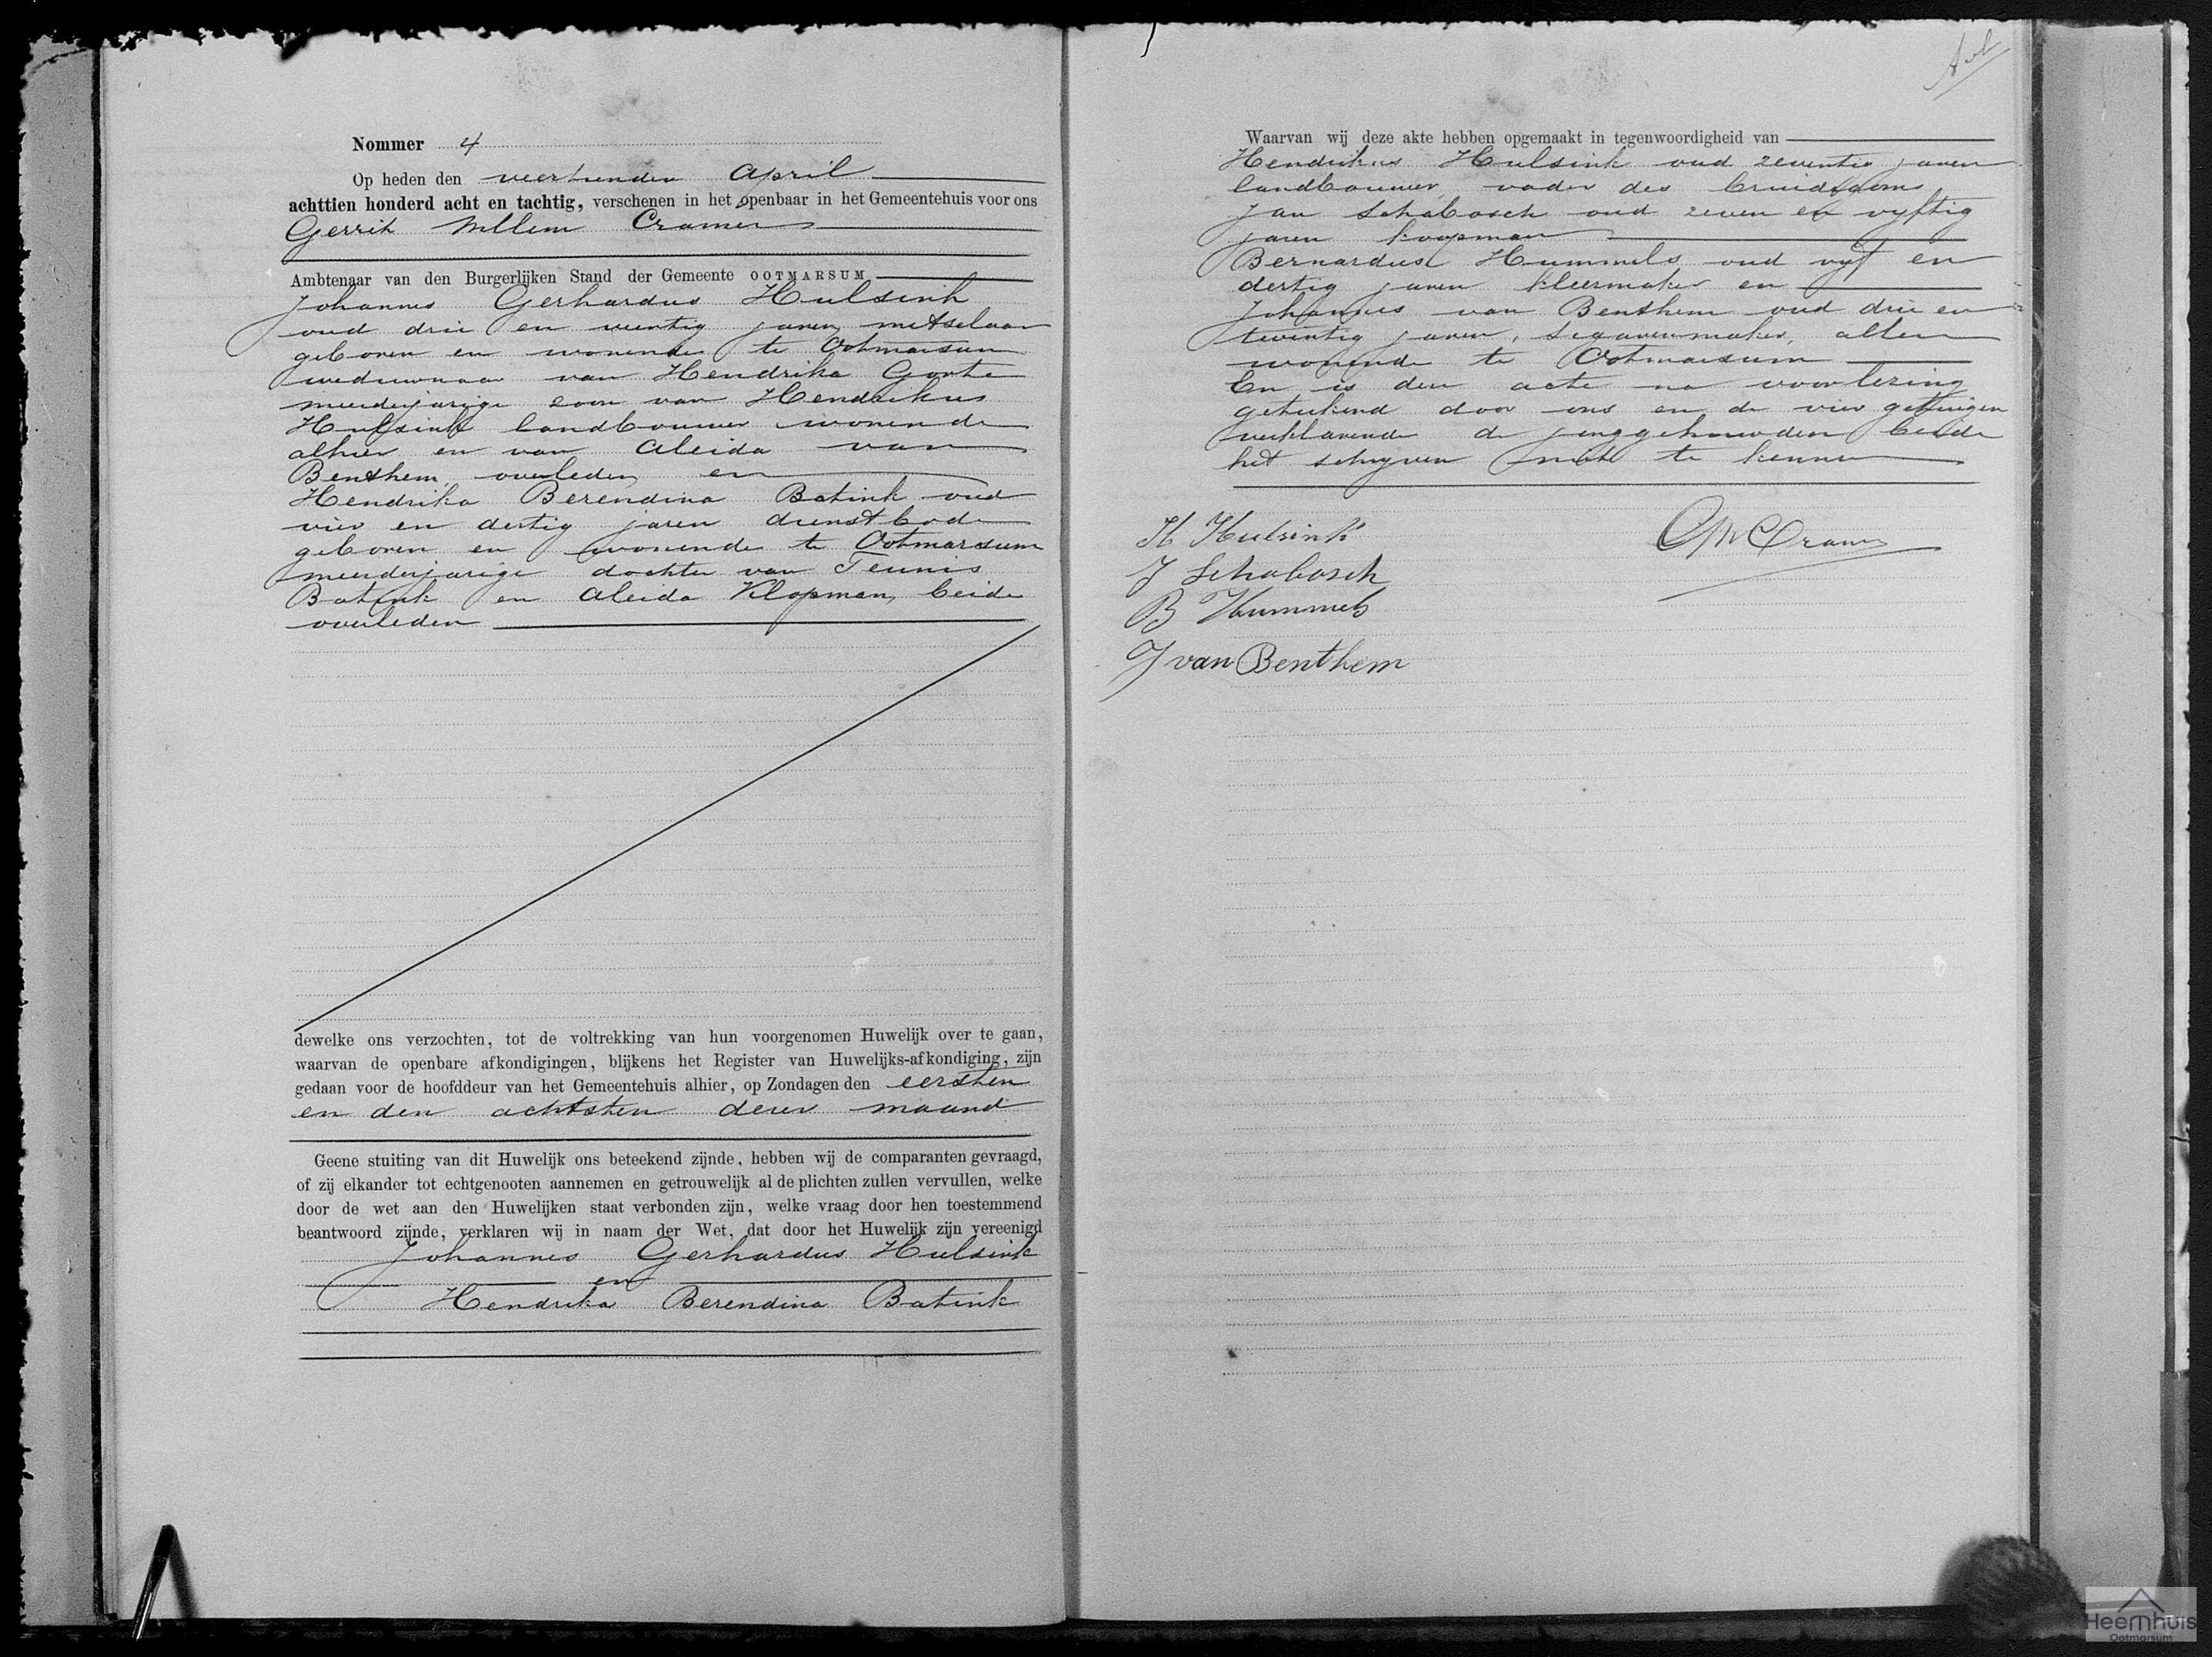 Nommer 4
Op heden den veertienden April
achttien honderd acht en tachtig, verschenen in het openbaar in het Gemeentehuis voor ons
Gerrit Willem Cramer
Ambtenaar van den Burgerlijken Stand der Gemeente OOTMARSUM
Johannes Gerhardus Hulsink
oud drie en veertig jaren, metselaar
geboren en wonende te Ootmarsum
weduwnaar van Hendrika
meerderjarige zoon van Hendrikus
Hulsink landbouwer wonende
alhier en van Aleida van
Benthem, overleden, en
Hendrika Berendina Batink oud
vier en dertig jaren dienstbode
geboren en wonende te Ootmarsum
meerderjarige dochter van Teunis
Batink en Aleida Klopman, beide
overleden
dewelke ons verzochten, tot de voltrekking van hun voorgenomen Huwelijk over te gaan,
waarvan de openbare afkondigingen, blijkens het Register van Huwelijks-afkondiging, zijn
gedaan voor de hoofddeur van het Gemeentehuis alhier, op Zondagen den eersten
en den achtsten dezer maand
Geene stuiting van dit Huwelijk ons beteekend zijnde, hebben wij de comparanten gevraagd,
of zij elkander tot echtgenooten aannemen en getrouwelijk al de plichten zullen vervullen, welke
door de wet aan den Huwelijken staat verbonden zijn, welke vraag door hen toestemmend
beantwoord zijnde, verklaren wij in naam der Wet, dat door het Huwelijk zijn vereenigd
Johannes Gerhardus Hulsink
en
Hendrika Berendina Batink
Waarvan wij deze akte hebben opgemaakt in tegenwoordigheid van
Hendrikus Hulsink oud zeventig jaren
landbouwer, vader des bruidegoms,
Jan Schabosch oud zeven en vyftig
jaren koopman
Bernardus Hummels oud vyf en
dertig jaren kleermaker en
Johannes van Benthem oud drie en
twintig jaren, sigarenmaker, allen
wonende te Ootmarsum
En is deze acte na voorlezing
geteekend door ons en de vier getuigen
verklarende de jonggehuwden beide
het schryven niet te kennen
H Hulsink
GWCramer
J Schabosch
B Hummels
J van Benthem
Heemhuis
Ootmarsum